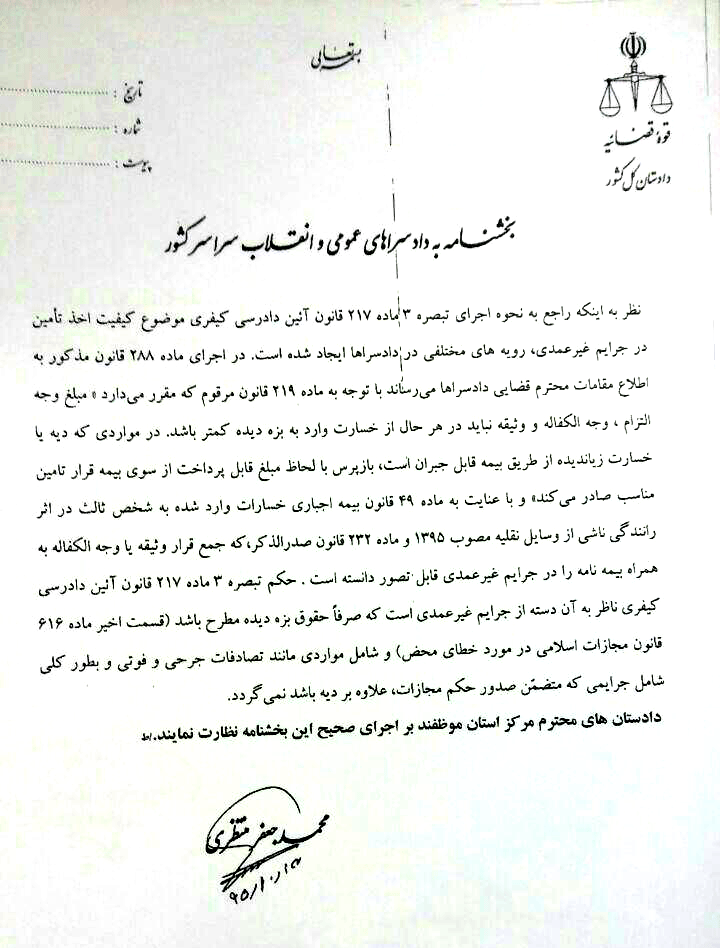 بسمه تعالی
قوه قضائیه
دادستان کل کشور
تاریخ :
شماره :
پیوست :
بخشنامه به دادسراهای عمومی و انقلاب سراسر کشور
نظر به اینکه راجع به نحوه اجرای تبصره ۳ ماده ۲۱۷ قانون آئین دادرسی کیفری موضوع کیفیت اخذ تأمین
در جرایم غیرعمدی، رویه های مختلفی در دادسراها ایجاد شده است. در اجرای ماده ۲۸۸ قانون مذکور به
اطلاع مقامات محترم قضایی دادسراها می‌رساند با توجه به ماده ۲۱۹ قانون مرقوم که مقرر می‌دارد « مبلغ وجه
التزام ، وجه الکفاله و وثیقه نباید در هر حال از خسارت وارد به بزه دیده کمتر باشد. در مواردی که دیه یا
خسارت زیاندیده از طریق بیمه قابل جبران است، بازپرس با لحاظ مبلغ قابل پرداخت از سوی بیمه قرار تامین
مناسب صادر می‌کند» و با عنایت به ماده ۴۹ قانون بیمه اجباری خسارات وارد شده به شخص ثالث در اثر
رانندگی ناشی از وسایل نقلیه مصوب ۱۳۹۵ و ماده ۲۳۲ قانون صدرالذکر،که جمع قرار وثیقه یا وجه الکفاله به
همراه بیمه نامه را در جرایم غیرعمدی قابل تصور دانسته است . حکم تبصره ۳ ماده ۲۱۷ قانون آئین دادرسی
کیفری ناظر به آن دسته از جرایم غیرعمدی است که صرفاً حقوق بزه دیده مطرح باشد (قسمت اخیر ماده ۶۱۶
قانون مجازات اسلامی در مورد خطای محض) و شامل مواردی مانند تصادفات جرحی و فوتی و بطور کلی
شامل جرایمی که متضمّن صدور حکم مجازات، علاوه بر دیه باشد نمی‌گردد.
دادستان های محترم مرکز استان موظفند بر اجرای صحیح این بخشنامه نظارت نمایند.
محمد جعفر منتظری